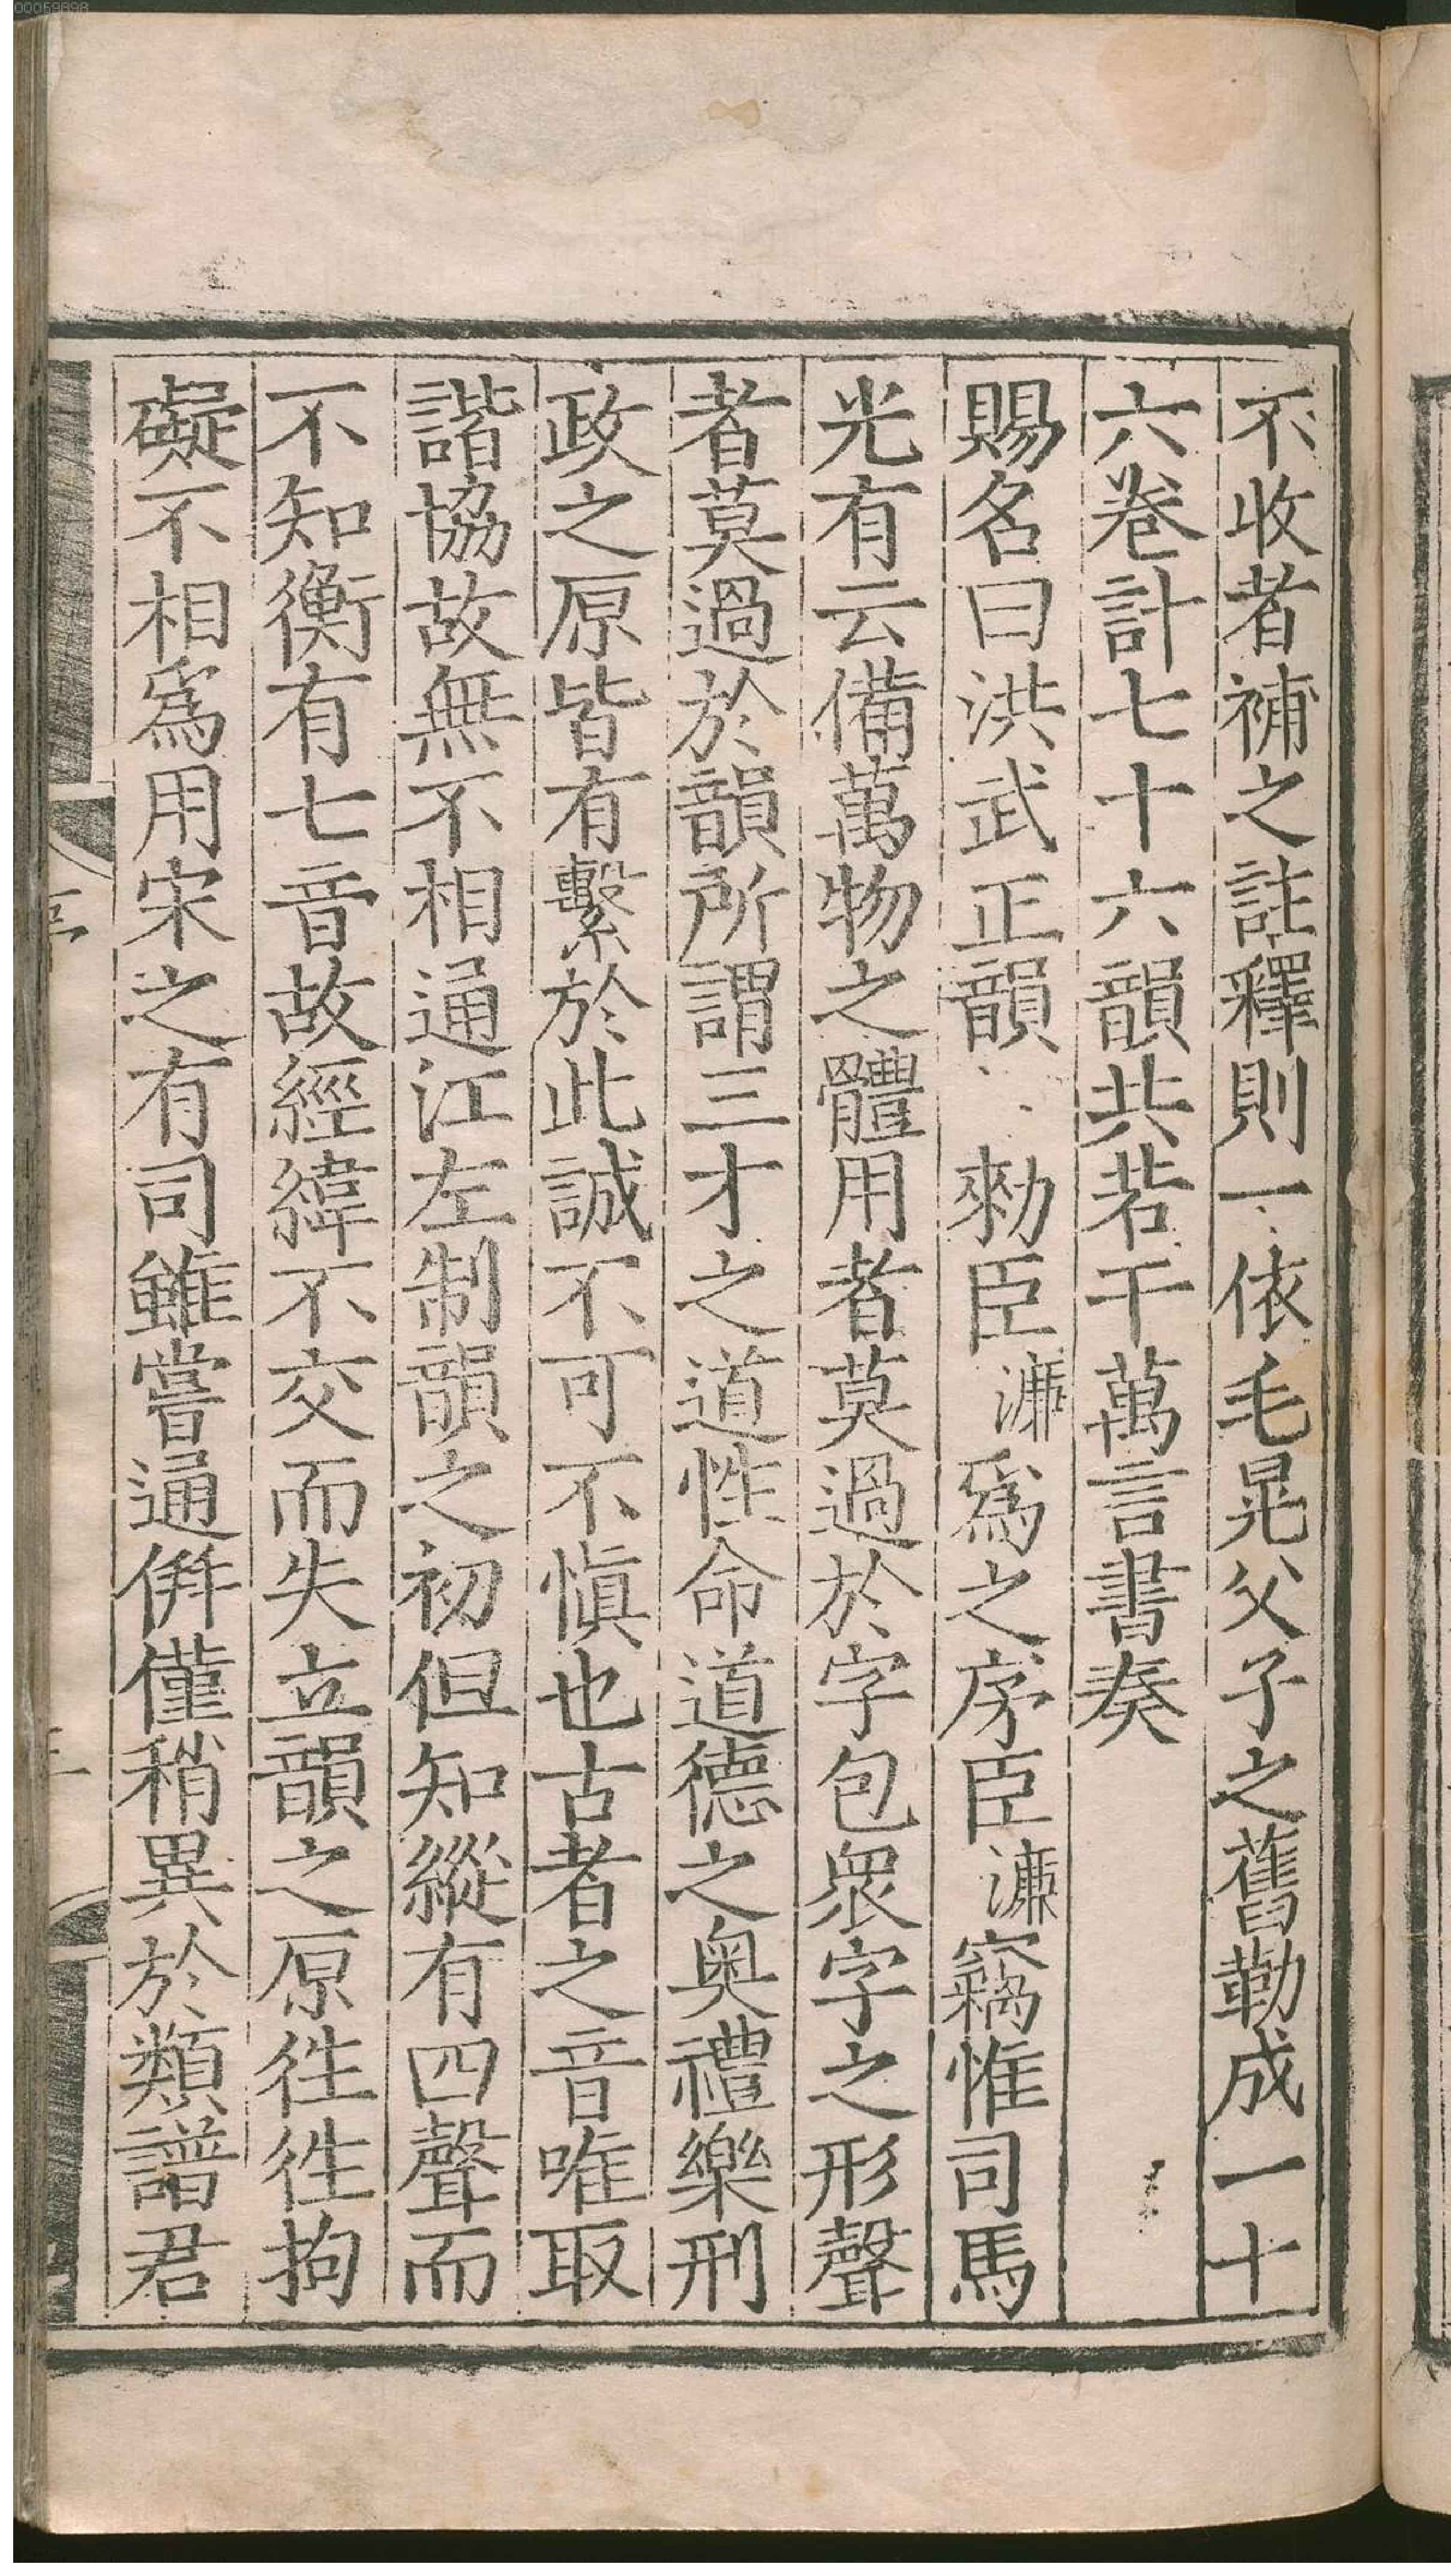 不收者補之註釋則一依毛晃父子之舊勒成一十
六卷計七十六韻共若干萬言書奏
賜名曰洪武正韻 勑臣濂爲之序臣濂竊惟司馬
光有云備萬物之體用者莫過於字包衆字之形聲
者莫過於韻所謂三才之道性命道德之奥禮樂刑
政之原皆有繫於此誠不可不愼也古者之音唯取
諧協故無不相通江左制韻之初但知縱有四聲而
不知衡有七音故經緯不交而失立韻之原徃徃拘
礙不相爲用宋之有司雖嘗通倂僅稍異於類譜君
00059898